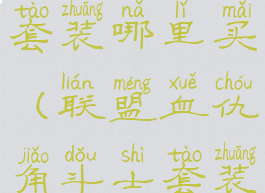 tào zhuāng nǎ lǐ mǎi
套装哪里买
lián méng xuè chóu
（联盟血仇
jiǎo dǒu shì tào zhuāng
角斗士套装